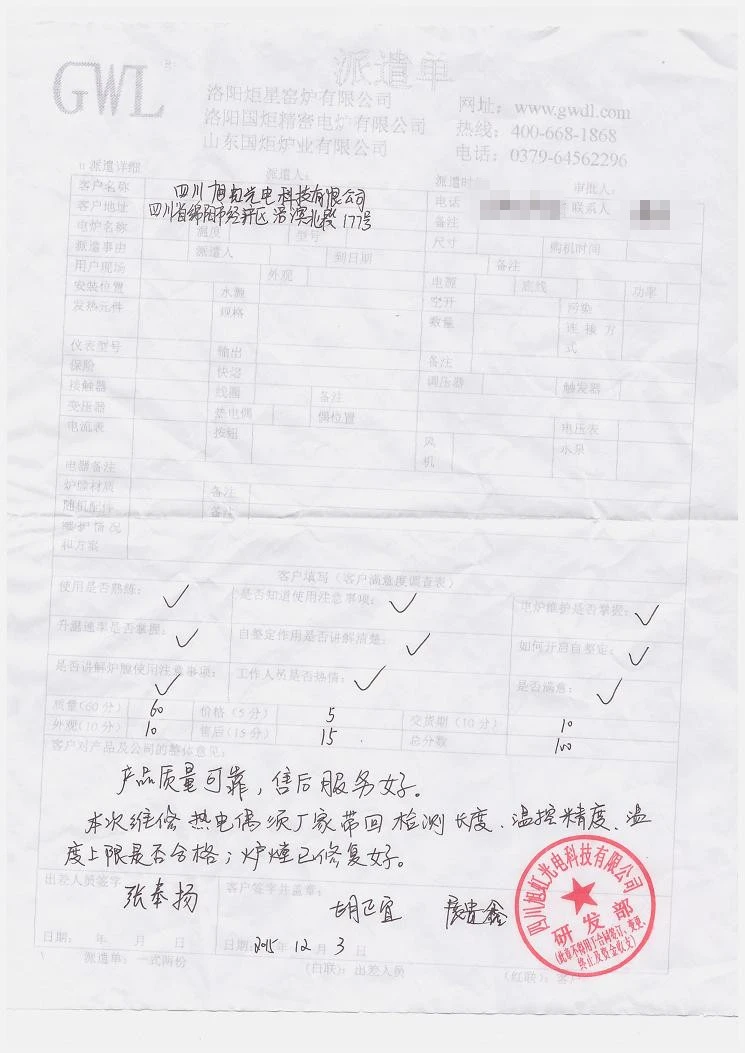 GWL
派遣单
洛阳炬星窑炉有限公司
网址：www.gwdl.com
洛阳国炬精密电炉有限公司
热线：400-668-1868
山东国炬炉业有限公司
电话：0379-64562296
派遣详细 派遣人： 派遣时 审批人：
客户名称 四川旭虹光电科技有限公司 电话 联系人
客户地址 四川省绵阳市经开区涪滨北段177号 备注
电炉名称 温度 型号 尺寸 购机时间
派遣事由 派遣人 到日期 备注
用户现场 外观 电源 底线 功率
安装位置 水源 空开 污染
发热元件 规格 数量 连接方式
仪表型号 输出 备注
保险 快熔 调压器 触发器
接触器 线圈 备注
变压器 热电偶 偶位置 电压表
电流表 按钮 风机 水泵
电器备注
炉膛材质 备注
随机配件 备注
维护情况
和方案
客户填写（客户满意度调查表）
使用是否熟练： ✓ 是否知道使用注意事项： ✓ 电炉维护是否掌握： ✓
升温速率是否掌握： ✓ 自整定作用是否讲解清楚： ✓ 如何开启自整定： ✓
是否讲解炉膛使用注意事项： ✓ 工作人员是否热情： ✓ 是否满意： ✓
质量(60分) 60 价格（5分） 5 交货期（10分） 10
外观(10分) 10 售后(15分) 15 总分数 100
客户对产品及公司的整体意见：
产品质量可靠，售后服务好。
本次维修热电偶须厂家带回检测长度、温控精度、温
度上限是否合格；炉膛已修复好。
出差人员签字 客户签字并盖章：
张奉扬
日期： 年 月 日 日期：2015年12月3日
派遣单：一式两份 (白联)：出差人员 (红联)：客户
四川旭虹光电科技有限公司
研发部
(此章不得用于合同签订、变更、
终止及资金收支)